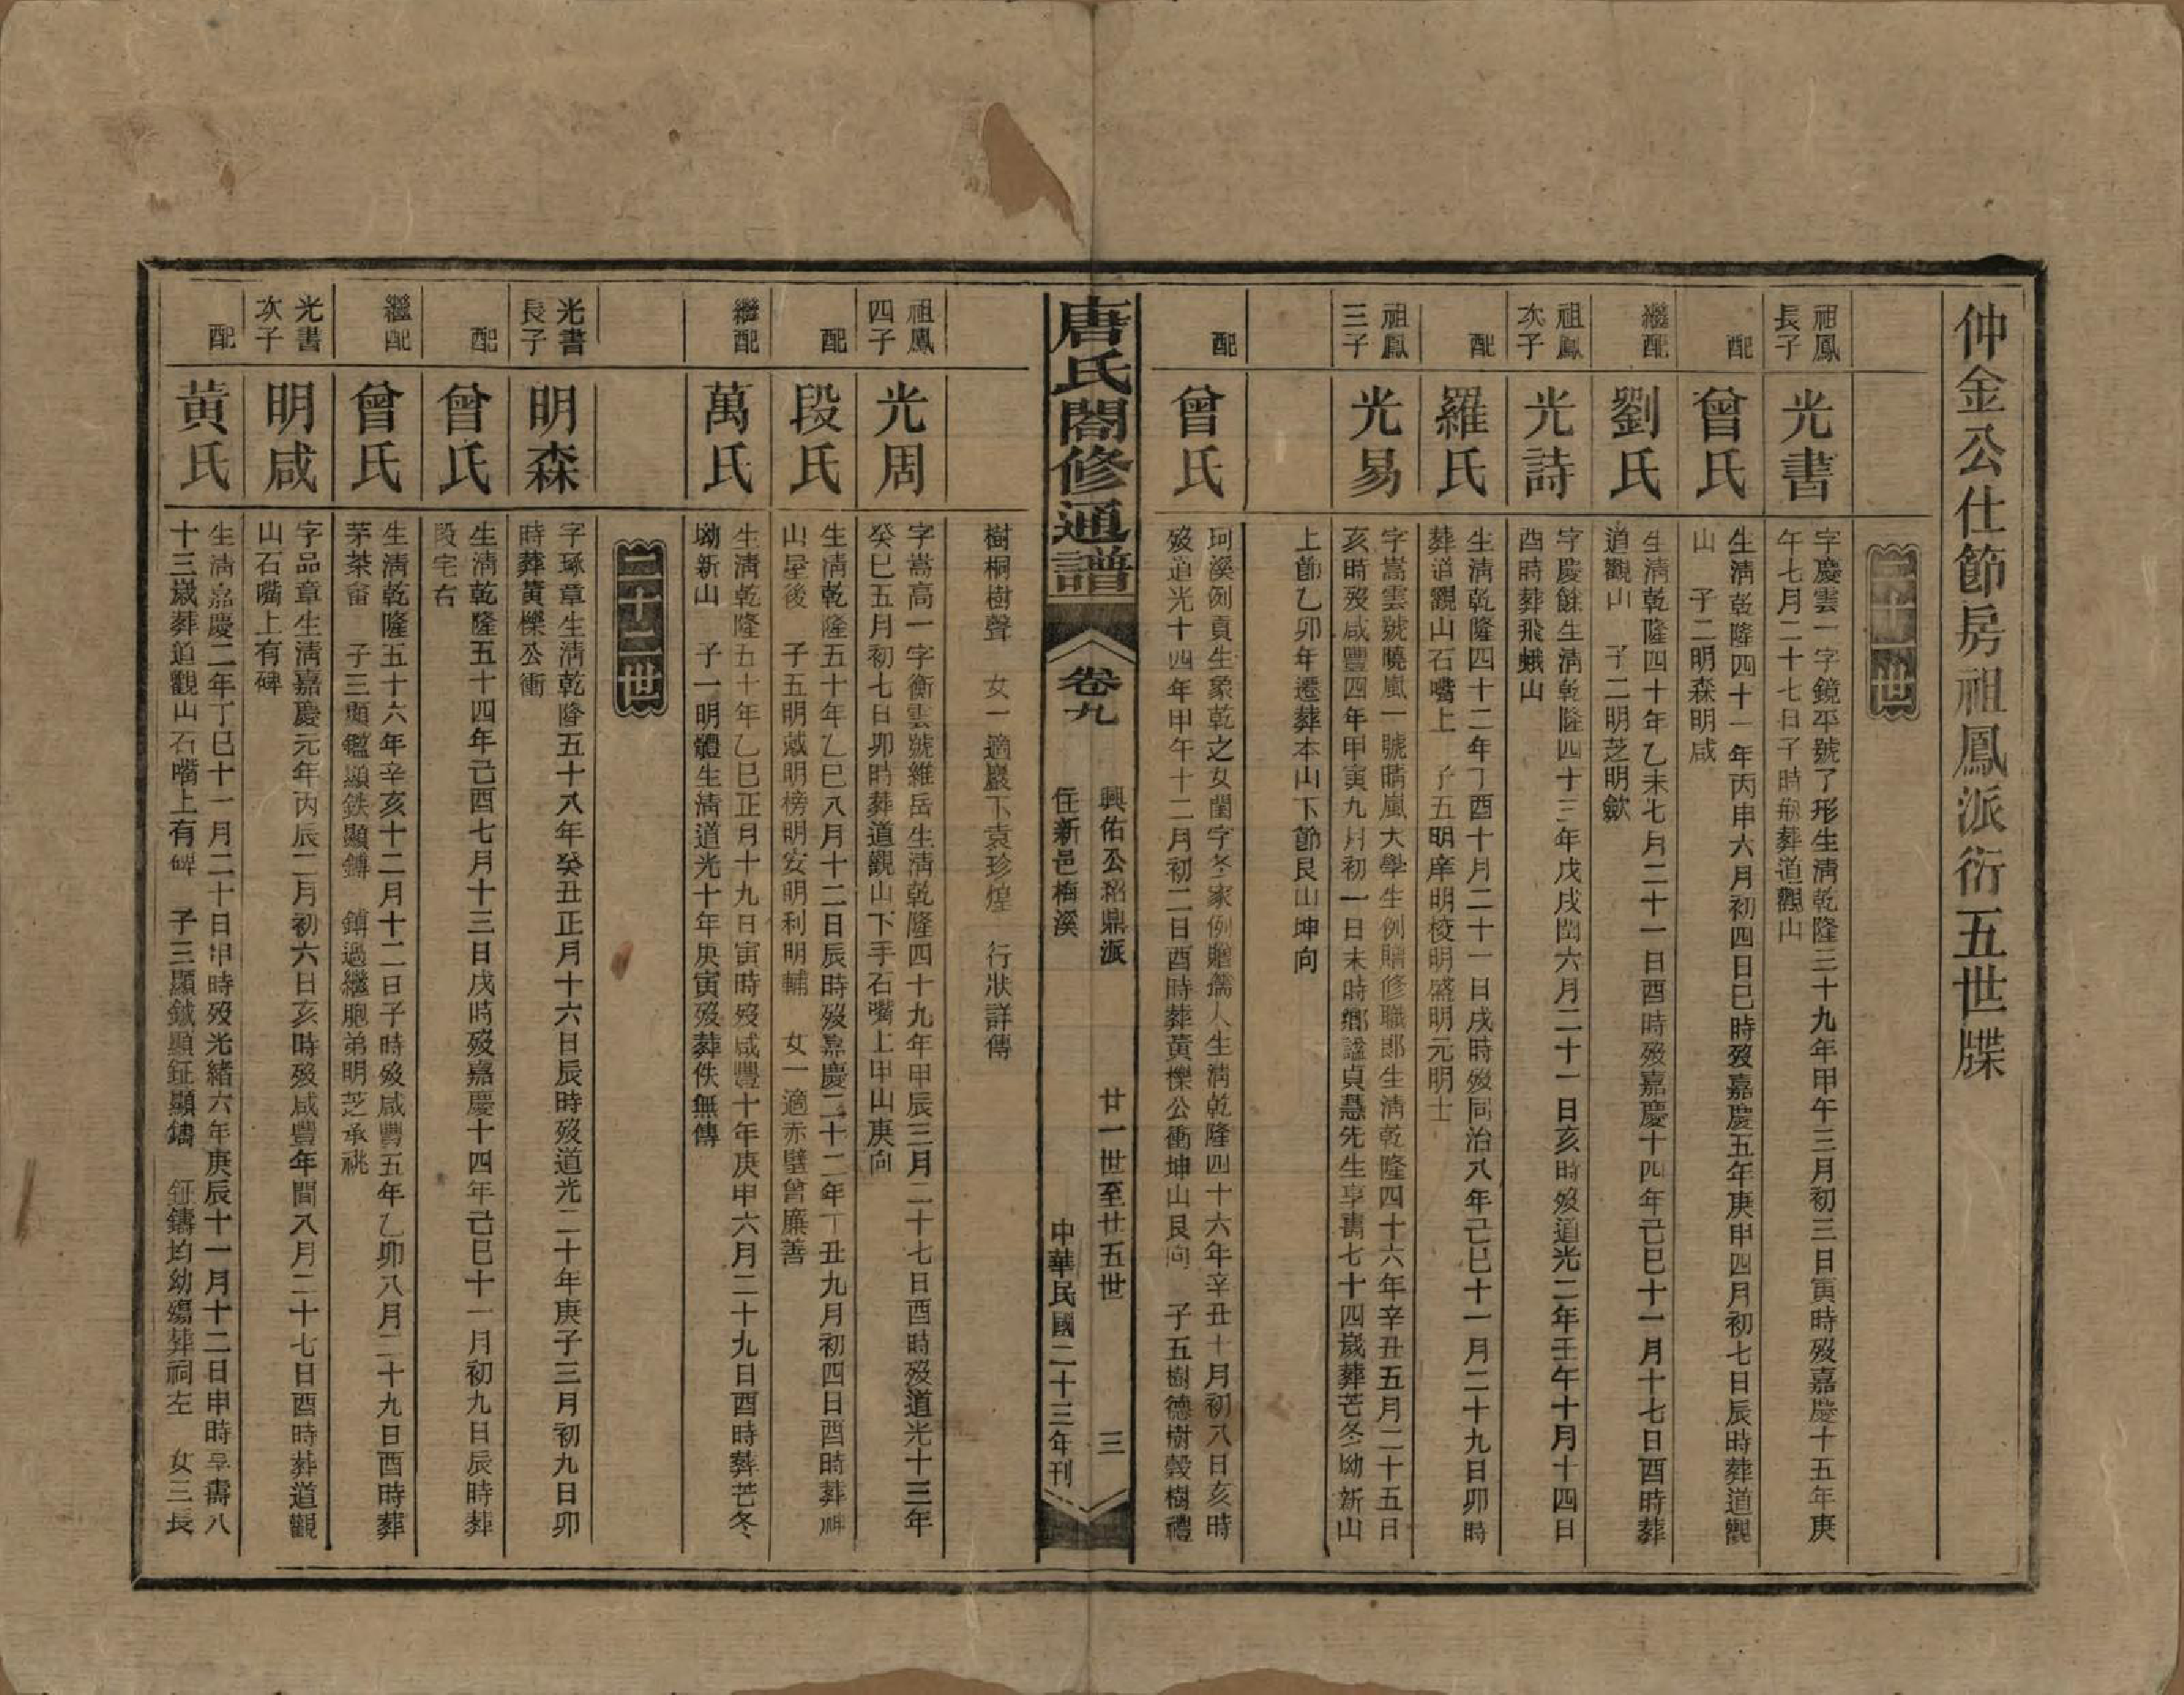 仲金公仕節房祖鳳派衍五世牒
二十一世
祖鳳
長子
光書
字慶雲一字鏡平號了形生清乾隆三十九年甲午三月初三日寅時歿嘉慶十五年庚
午七月二十七日子時瓶葬道觀山
配
曾氏
生清乾隆四十一年丙申六月初四日巳時歿嘉慶五年庚申四月初七日辰時葬道觀
山　子二明森明咸
繼配
劉氏
生清乾隆四十年乙未七月二十一日酉時歿嘉慶十四年己巳十一月十七日酉時葬
道觀山　子二明芝明歙
祖鳳
次子
光詩
字慶餘生清乾隆四十三年戊戌閏六月二十一日亥時歿道光二年壬午十月十四日
酉時葬飛蛾山
配
羅氏
生清乾隆四十二年丁酉十月二十一日戌時歿同治八年己巳十一月二十九日卯時
葬道觀山石嘴上　子五明庠明棱明盛明元明士
祖鳳
三子
光易
字嵩雲號曉嵐一號晴嵐大學生例贈修職郎生清乾隆四十六年辛丑五月二十五日
亥時歿咸豐四年甲寅九月初一日未時鄉謚貞惠先生享壽七十四歲葬芒冬坳新山
上節乙卯年遷葬本山下節艮山坤向
配
曾氏
珂溪例貢生象乾之女閨字冬家例贈孺人生清乾隆四十六年辛丑十月初八日亥時
歿道光十四年甲午十二月初二日酉時葬黃櫟公衝坤山艮向　子五樹德樹穀樹禮
唐氏閤修通譜
卷九
興佑公紹鼎派
住新邑梅溪
廿一世至廿五世
三
中華民國二十三年刊
樹桐樹聲　女一適巖下袁珍煌　行狀詳傳
祖鳳
四子
光周
字嵩高一字衡雲號維岳生清乾隆四十九年甲辰三月二十七日酉時歿道光十三年
癸巳五月初七日卯時葬道觀山下手石嘴上甲山庚向
配
段氏
生清乾隆五十年乙巳八月十二日辰時歿嘉慶二十二年丁丑九月初四日酉時葬神
山屋後　子五明懴明榜明安明利明輔　女一適赤壁曾廉善
繼配
萬氏
生清乾隆五十年乙巳正月十九日寅時歿咸豐十年庚申六月二十九日酉時葬芒冬
坳新山　子一明體生清道光十年庚寅歿葬佚無傳
二十二世
光書
長子
明森
字琢章生清乾隆五十八年癸丑正月十六日辰時歿道光二十年庚子三月初九日卯
時葬黃櫟公衝
配
曾氏
生清乾隆五十四年己酉七月十三日戌時歿嘉慶十四年己巳十一月初九日辰時葬
段宅右
繼配
曾氏
生清乾隆五十六年辛亥十二月十二日子時歿咸豐五年乙卯八月二十九日酉時葬
茅茶畬　子三顯鑑顯鉄顯鎛　鎛過繼胞弟明芝承祧
光書
次子
明咸
字品章生清嘉慶元年丙辰二月初六日亥時歿咸豐年間八月二十七日酉時葬道觀
山石嘴上有碑
配
黃氏
生清嘉慶二年丁巳十一月二十日申時歿光緒六年庚辰十一月十二日申時享壽八
十三歲葬道觀山石嘴上有碑　子三顯鉞顯鉦顯鑄　鉦鑄均幼殤葬祠左　女三長